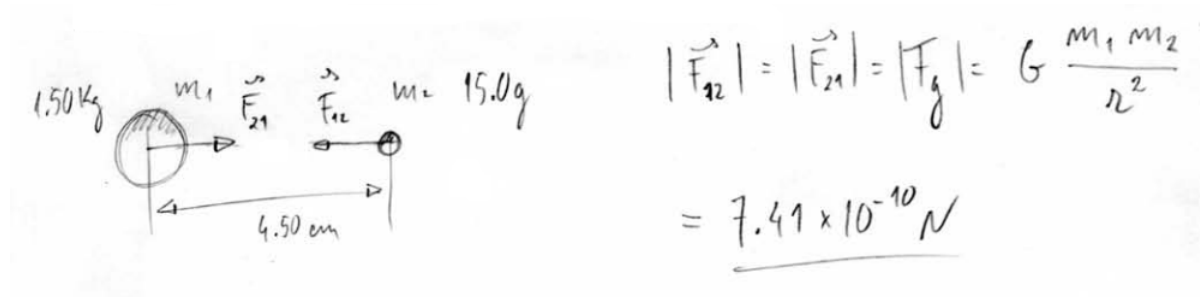 1.50 Kg m₁ F⃗₂₁ F⃗₁₂ m₂ 15.0g
4.50 cm
|F⃗₁₂| = |F⃗₂₁| = |F⃗g| = G m₁ m₂ / r²
= 7.41 × 10⁻¹⁰ N